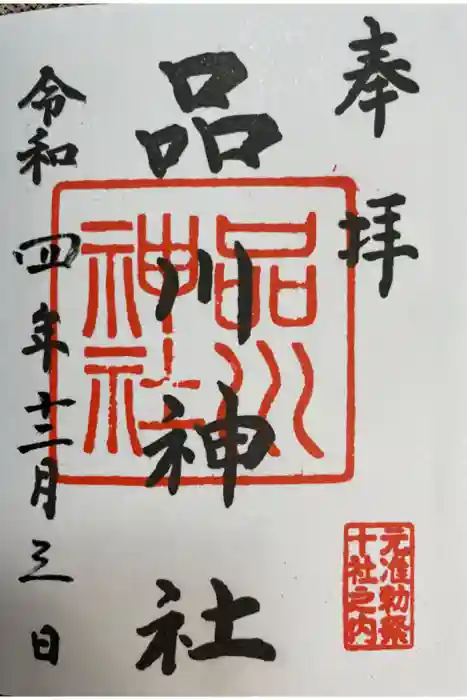 奉拝
品川神社
品川神社
元准勅祭
十社之内
令和四年十二月三日